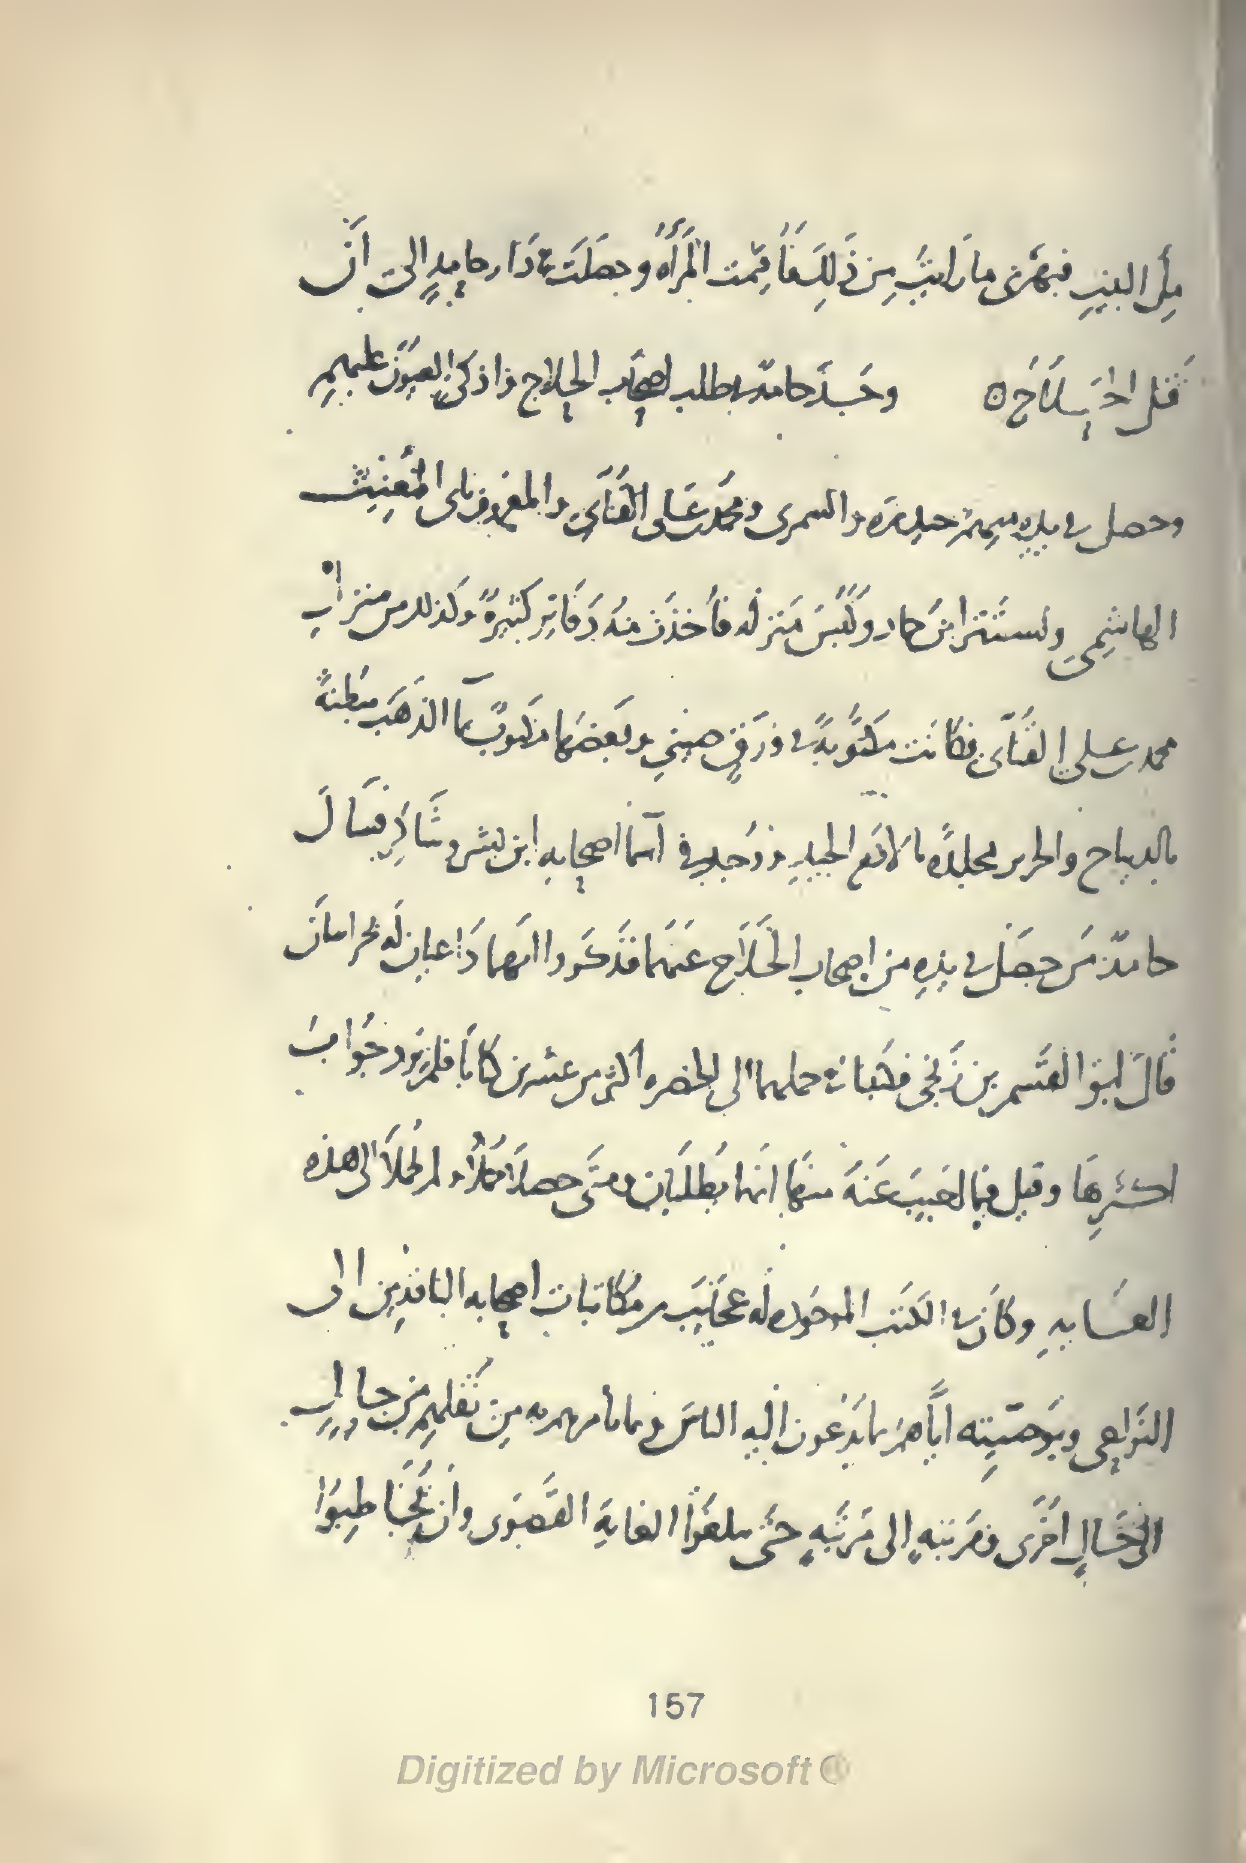 ملء البيت فبهرني ما رايت من ذلك فأقيمت المرأة وحصلت في دار حامد الى ان
قتل الحلاج ه وجد حامد في طلب اصحاب الحلاج واذكى العيون عليهم
وحصل في يده منهم حيدره والسمرى ومحمد بن على القنائى والمعروف بابى المغيث
الهاشمي واستتر ابن حماد وكبس منزله فأخذت منه دفاتر كثيرة وكذلك من منزل
محمد بن علي القنائى فكانت مكتوبة في ورق صيني وبعضها مكتوب بماء الذهب مبطنة
بالديباج والحرير مجلدة بالادم الجيد ووجد في اسماء اصحابه ابن بشر وشاكر فسال
حامد من حصل في يده من اصحاب الحلاج عنهما فذكروا انهما داعيان له بخراسان
قال ابو القسم بن زنجي فكتبنا في حملهما الى الحضره اكثر من عشرين كتابا فلم يرد جواب
اكثرها وقيل فيما اجيب عنه منها انهما يطلبان ومتى حصلا حملا ولم يحملا الى هذه
الغاية وكان في الكتب الموجوده له عجائب من مكاتبات اصحابه النافذين الى
النواحي وبوصيته اياهم بما يدعون اليه الناس وبما يأمرهم به من نقلهم من حال
الى حال اخرى ومرتبه الى مرتبه حتى يبلغوا الغاية القصوى وان يخاطبوا
157
Digitized by Microsoft ®